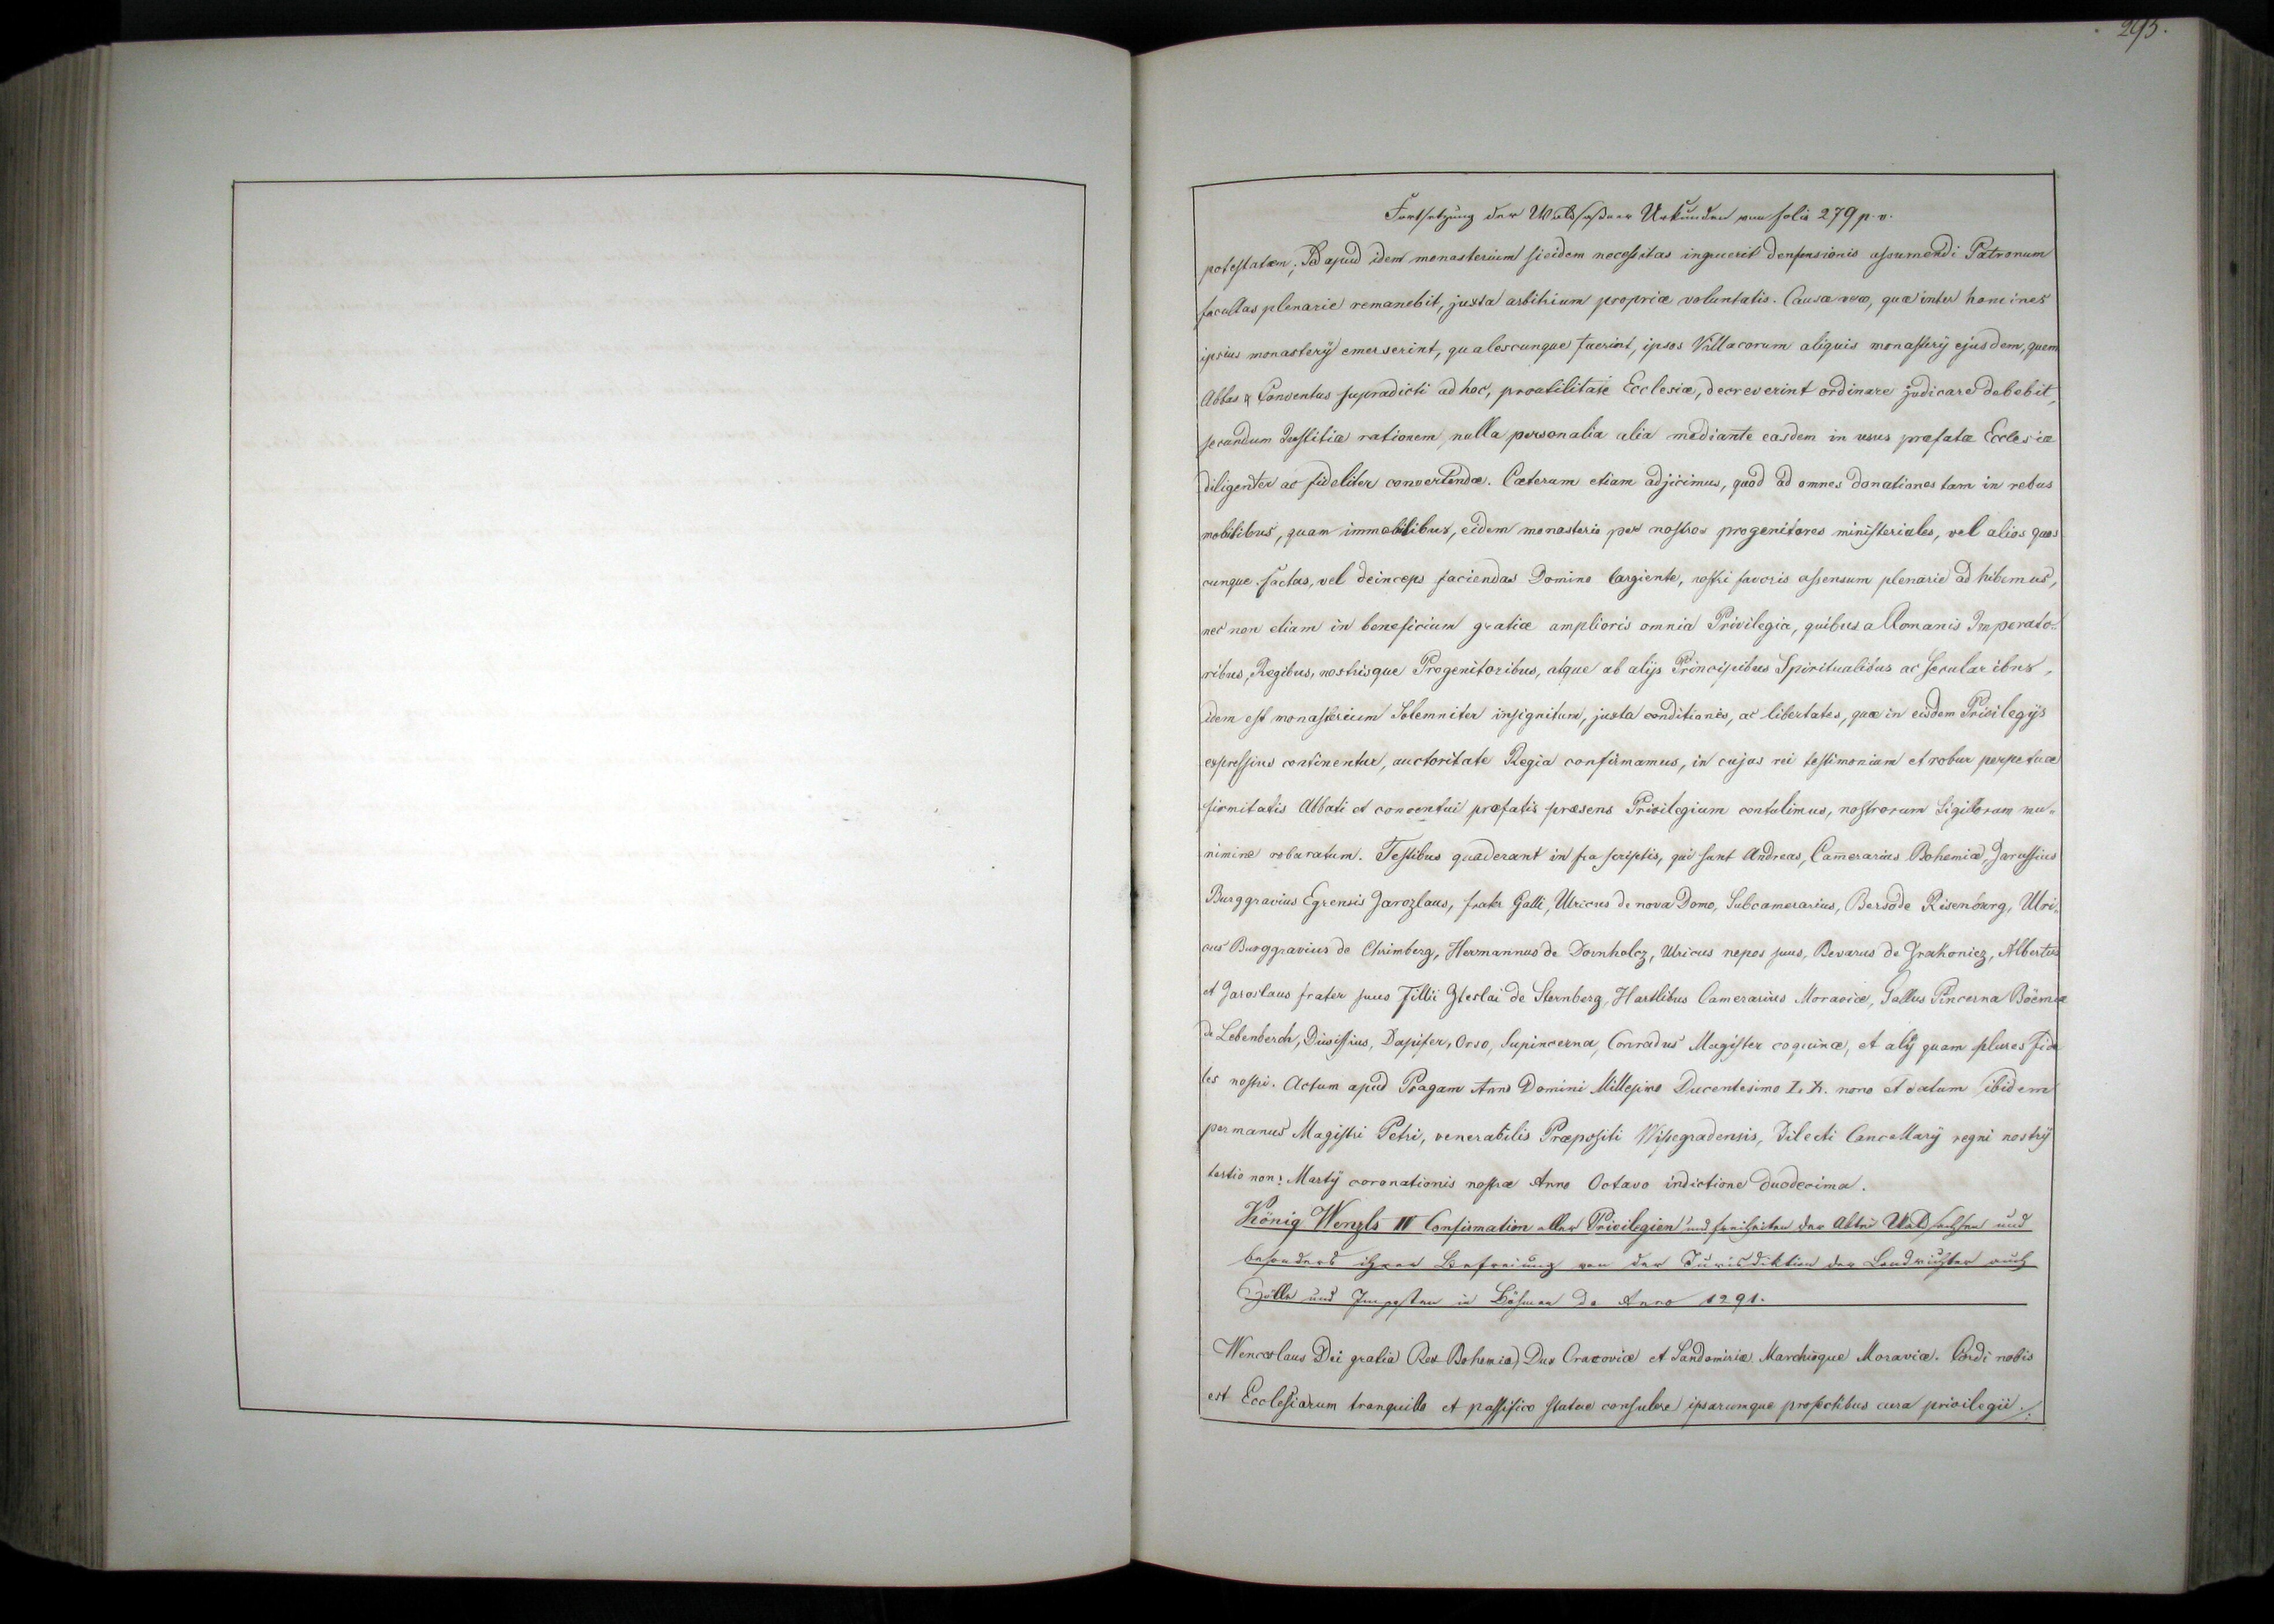 295.
Fortsetzung der Waldsaßner Urkunden von folio 279 p. v.
potestatem; Sed apud idem monasterium si eidem necessitas ingruerit densensionis assumendi Patronum
facultas plenarie remanebit, juxta arbitrium propriæ voluntatis. Causæ vero, quæ inter homines
ipsius monasterÿ emerserint, qualescunque fuerint, ipsos Villacorum aliquis monasterÿ ejusdem, quem
Abbas & Conventus supradicti ad hoc, pro utilitate Ecclesiæ, decreverint ordinare judicare debebit,
secundum Justitiæ rationem, nulla personalia alia mediante easdem in usus præfatæ Ecclesiæ
diligenter ac fideliter convertendæ. Cæterum etiam adjicimus, quod ad omnes donationes tam in rebus
mobilibus, quam immobilibus, eidem monasterio per nostros progenitores ministeriales, vel alios quos
cunque factas, vel deinceps faciendas Domino largiente, nostri favoris assensum plenarie adhibemus,
nec non etiam in beneficium gratiæ amplioris omnia Privilegia, quibus a Romanis Imperato-
ribus, Regibus, nostrisque Progenitoribus, atque ab alÿs Principibus Spiritualibus ac Secularibus,
idem est monasterium Solemniter insignitum, juxta conditiones, ac libertates, quæ in eisdem Privilegÿs
expressius continentur, auctoritate Regia confirmamus, in cujus rei testimonium et robur perpetuæ
firmitatis Abbati et conventui præfatis præsens Privilegium contulimus, nostrorum Sigillorum mu-
nimine roboratum. Testibus quaderant infra scriptis, qui sunt Andreas, Camerarius Bohemiæ, Jarussius
Burggravius Egrensis Jarozlaus, frater Galli, Ulricus de nova Domo, Subcamerarius, Berso de Risenburg, Ulri-
cus Burggravius de Chrimberg, Hermannus de Dornholcz, Ulricus nepos suus, Bevarus de Zrakonicz, Albertus
et Jaroslaus frater suus Fillii Zteslai de Sternberg, Hartlibus Camerarius Moraviæ, Gallus Pincerna Böemiæ
de Lebenberch, Diwissius, Dapifer, Orso, Supincerna, Conradus Magister coquinæ, et alÿ quam plures fide
les nostri. Actum apud Pragam Anno Domini Millesimo Ducentesimo L. X. nono et datum ibidem
per manus Magistri Petri, venerabilis Præpositi Wisegradensis, Dilecti Cancellarÿ regni nostrÿ
tertio non: Martÿ coronationis nostræ Anno Octavo indictione duodecima.
König Wenzls IV Confirmation aller Privilegien und freiheiten der Abtei Waldsachsen und
besonders ihrer Befreiung von der Jurisdiktion der Landrichter auch
Zölle und Imposten in Böhmen de Anno 1291.
Wenceslaus Dei gratia Rex Bohemia, Dux Cracoviæ et Sandomiriæ Marchioque Moraviæ. Cordi nobis
est Ecclesiarum tranquillo et passifico statui consulere ipsarumque profectibus cura privilegii ./.